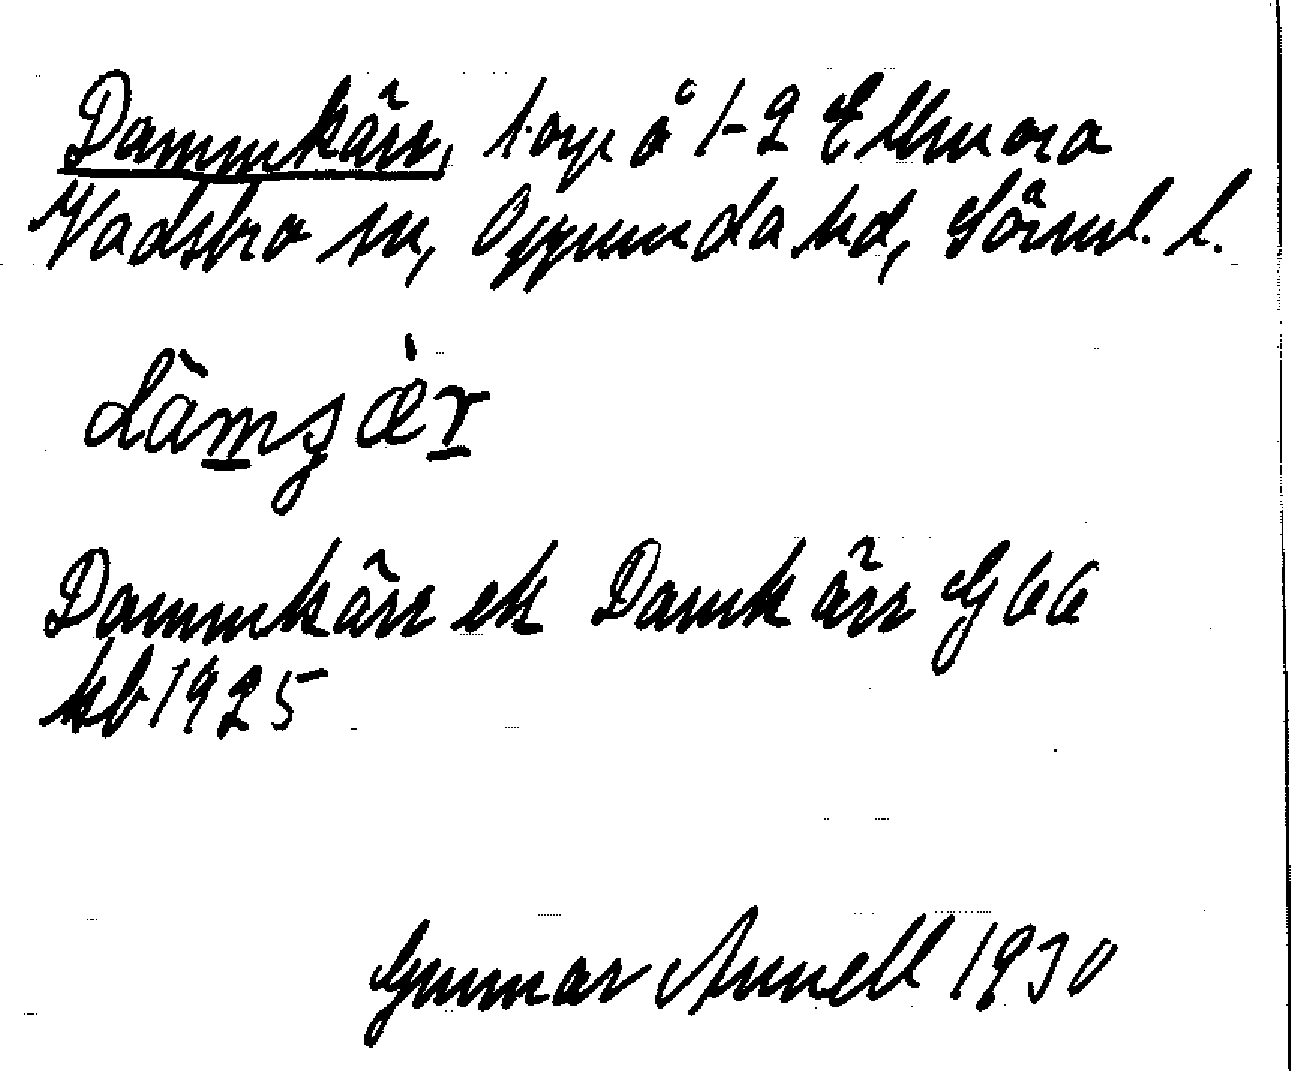 Dammkärr, torp å 1-2 Ellmora
Vadsbro sn, Oppunda hd, Sörml. l.
dàmʂæ̀r
Dammkärr ek Damkärr G 66
kb 1925
Gunnar Arnell 1930